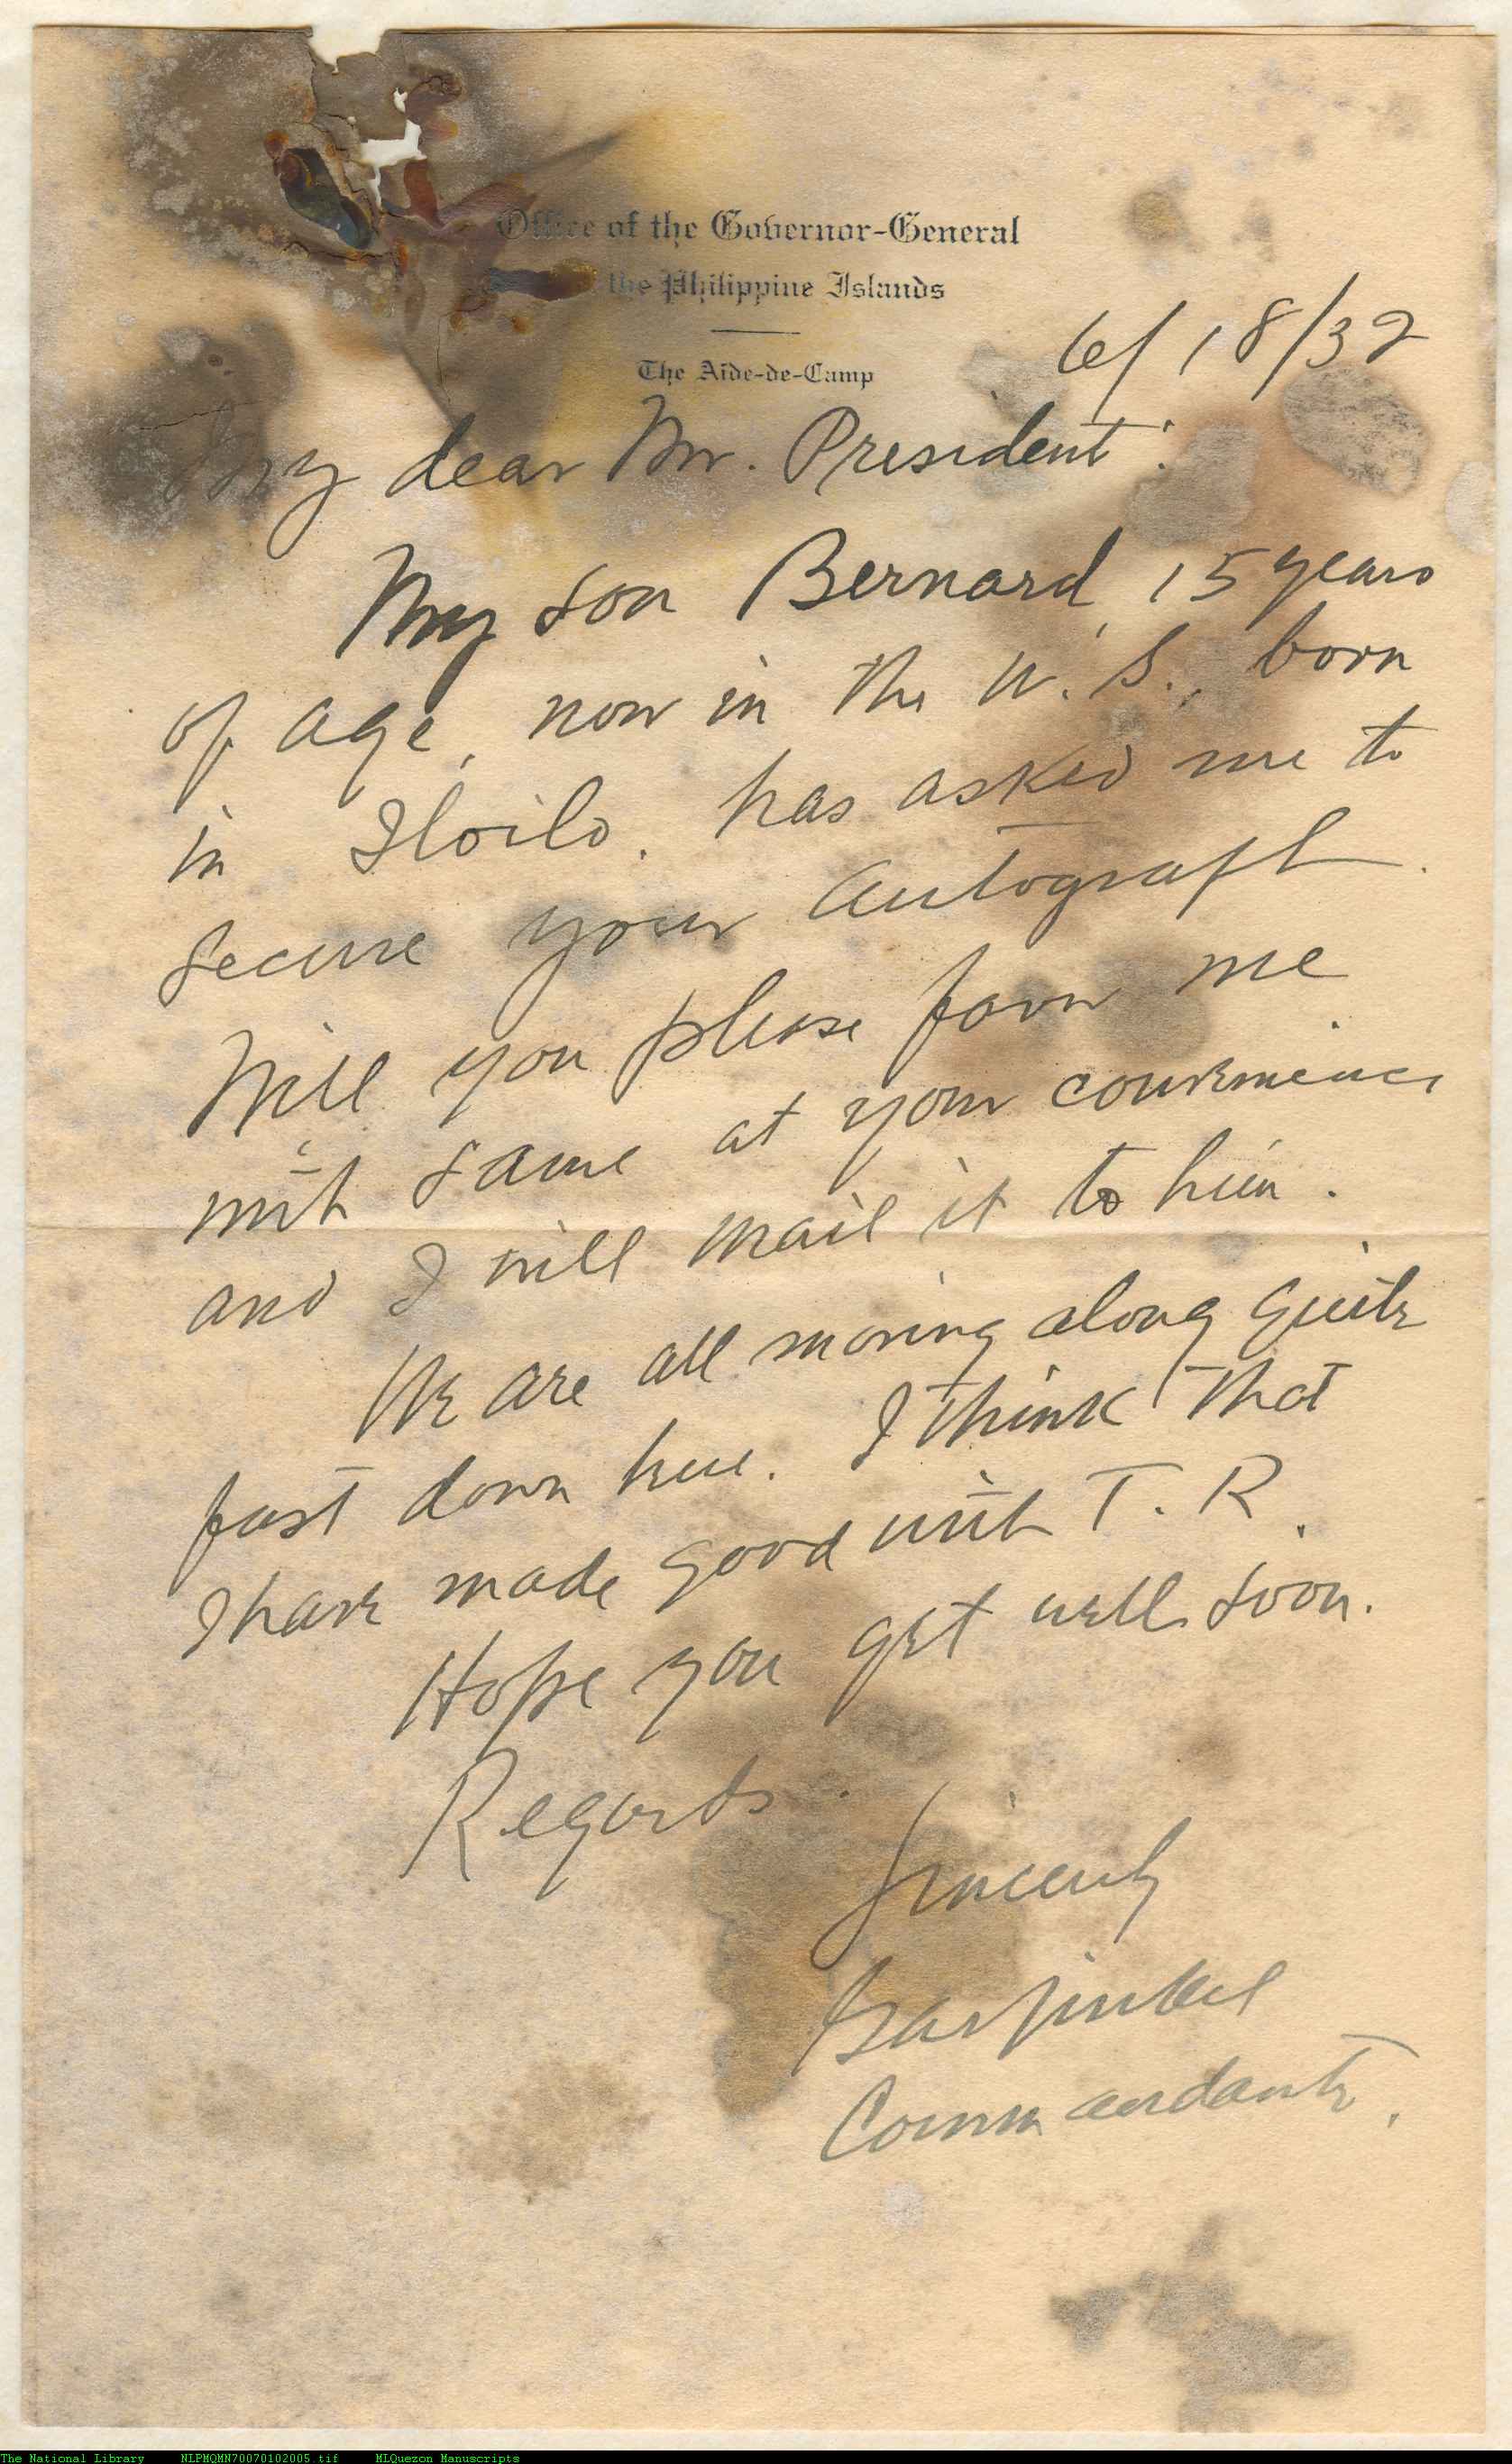 Office of the Governor-General
the Philippine Islands
The Aide-de-Camp
6/18/32
My dear Mr. President:
My son Bernard, 15 years
of age, now in the U.S., born
in Iloilo, has asked me to
secure your autograph.
Will you please favor me
with same at your convenience
and I will mail it to him.
We are all moving along quite
fast down here. I think that
I have made good with T.R.
Hope you get well soon.
Regards.
Sincerely
Garfinkel
Commandante.
The National Library NLPMQMN70070102005.tif MLQuezon Manuscripts